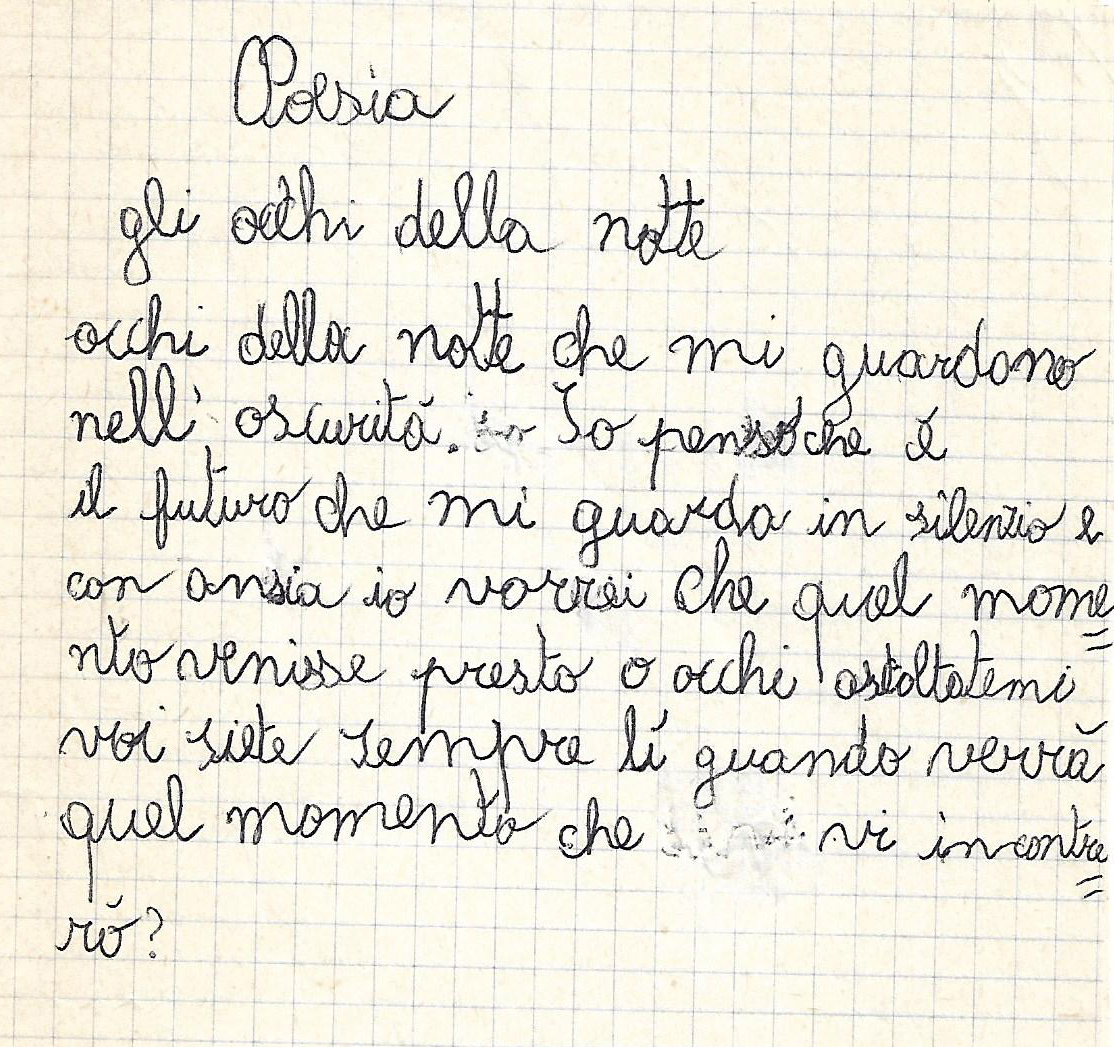 Poesia
gli occhi della notte
occhi della notte che mi guardano
nell' oscuritá. Io penso che é
il futuro che mi guarda in silenzio e
con ansia io vorrei che quel mome=
nto venisse presto o occhi ascoltatemi
voi siete sempre lí quando verrá
quel momento che vi incontre=
ró?